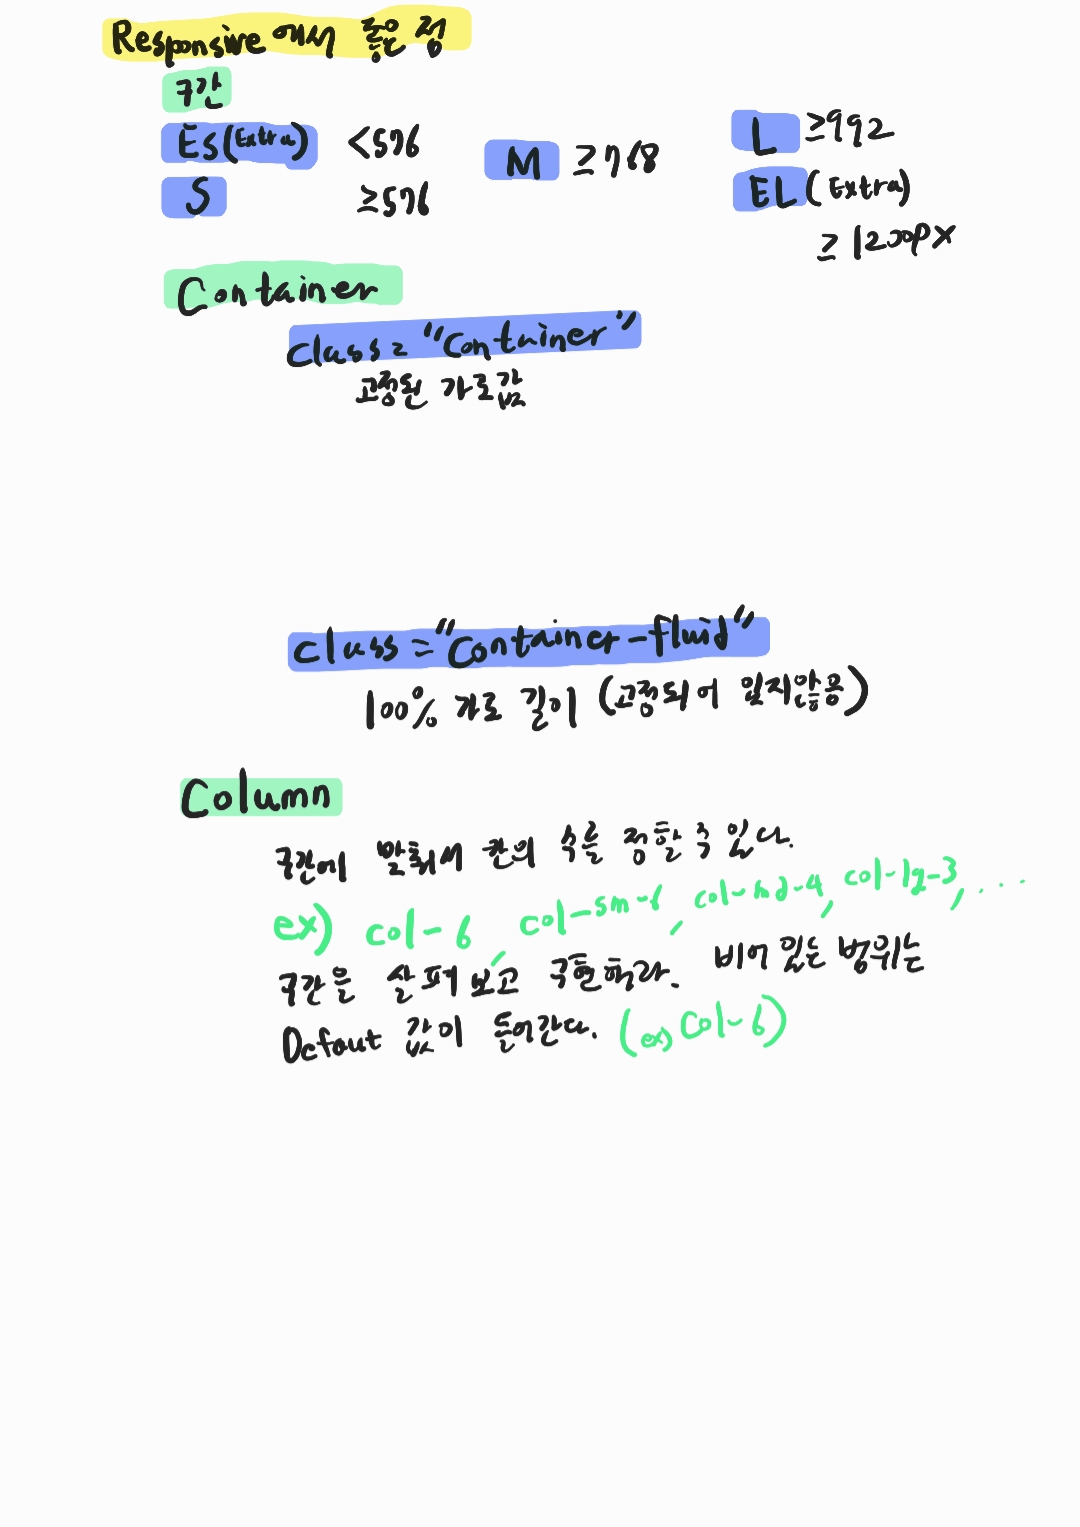 Responsive 에서 좋은 점
구간
ES(Extra) <576
S ≥576
M ≥768
L ≥992
EL(Extra)
≥1200px
Container
class="Container"
고정된 가로값
class="Container-fluid"
100% 가로 길이 (고정되어 있지않음)
Column
구간에 맞춰서 칸의 수를 정할 수 있다.
ex) col-6, col-sm-6, col-md-4, col-lg-3, ....
구간을 살펴보고 구현해라. 비어 있는 범위는
Defaut 값이 들어간다. (ex) col-6)